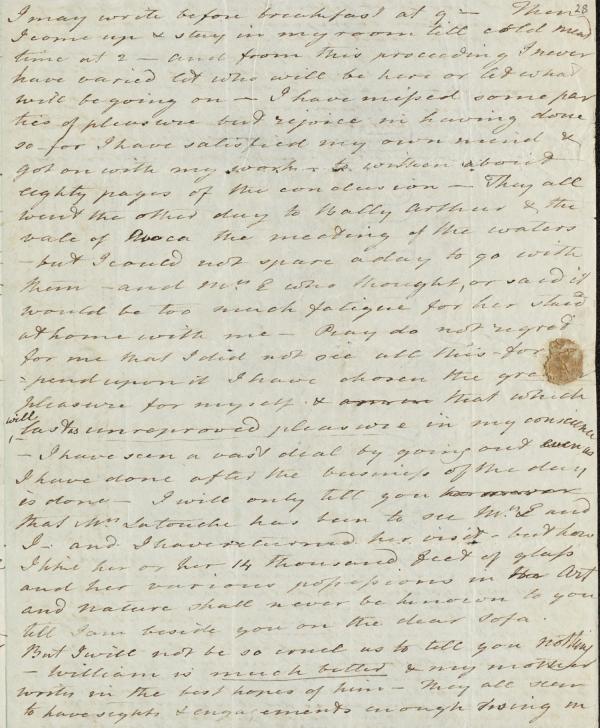 28
I may write before breakfast at 9 — Then
I come up & stay in my room till cold meat
time at 2 — and from this proceeding I never
have varied let who will be here or let what
will be going on — I have missed some par
ties of pleasure but rejoice in having done
so for I have satisfied my own mind &
got on with my work - & written about
eighty pages of the conclusion — They all
went the other day to Bally Arthur & the
vale of Avoca the meeting of the waters
- but I could not spare a day to go with
them - and Mrs E who thought, or said it
would be too much fatigue for her staid
at home with me — Pray do not regret
for me that I did not see all this - for
-pend upon it I have chosen the gre
pleasure for myself & that which
will
last unreproved pleasure in my conscience
- I have seen a vast deal by going out even as
I have done after the business of the day
is done — I will only tell you
that Mrs Latouche has been to see Mrs E and
I - and I have returned her visit - but how
I like her or her 14 thousand feet of glass
and her various possessions in Art
and nature shall never be known to you
till I am beside you on the dear sofa.
But I will not be so cruel as to tell you nothing
- William is much better & my mother
writes in the best hopes of him — They all seem
to have sights & engagements enough Swing in